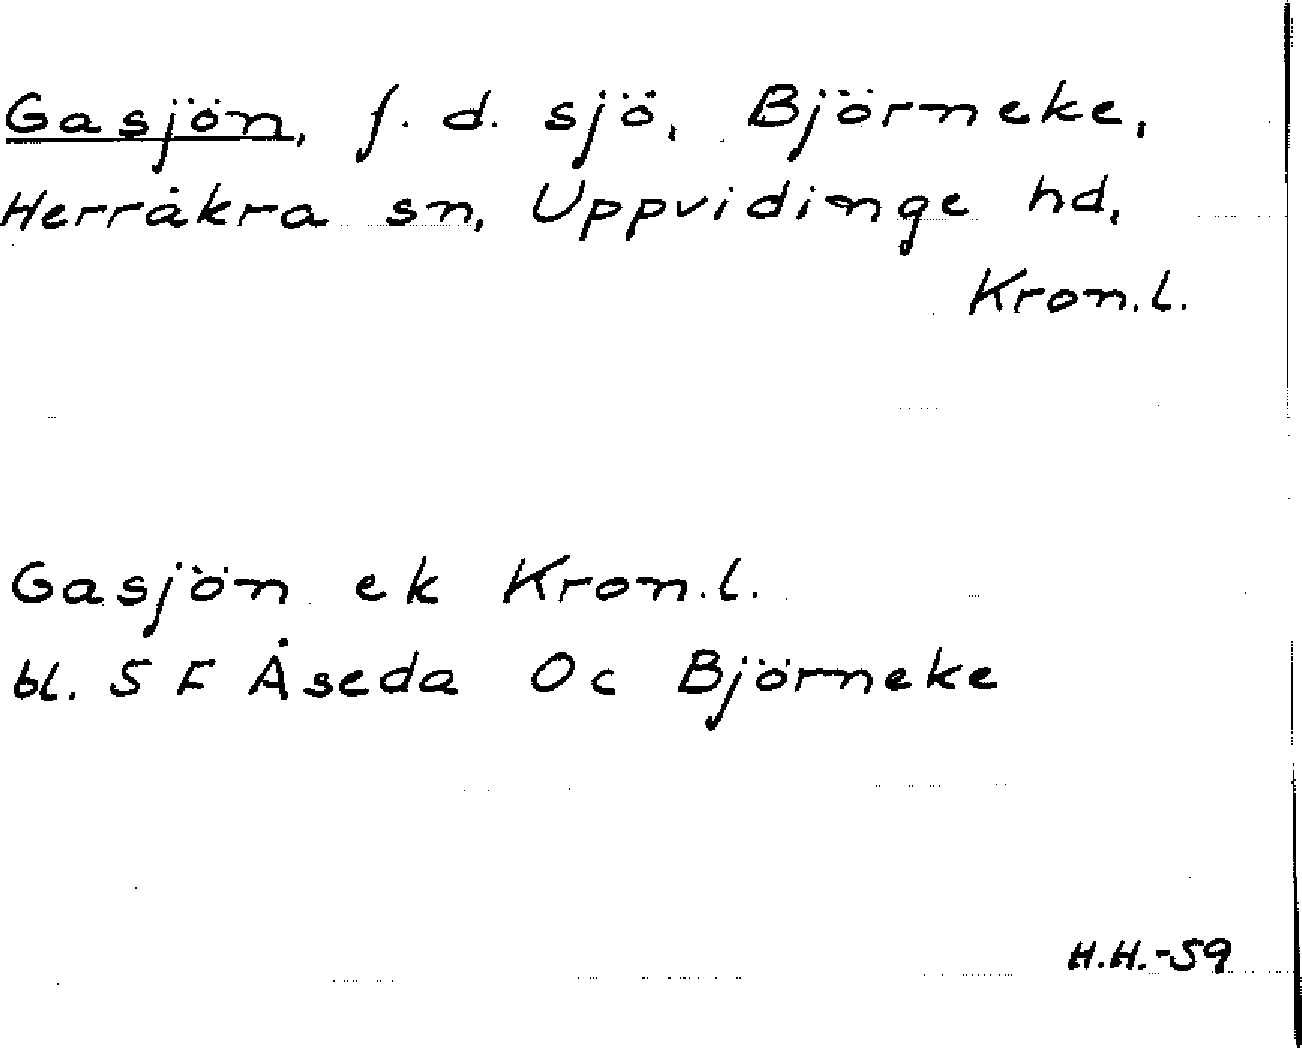 Gasjön, f. d. sjö, Björneke,
Herråkra sn, Uppvidinge hd,
Kron.l.
Gasjön ek Kron.l.
bl. 5 F Åseda Oc Björneke
H.H.-59